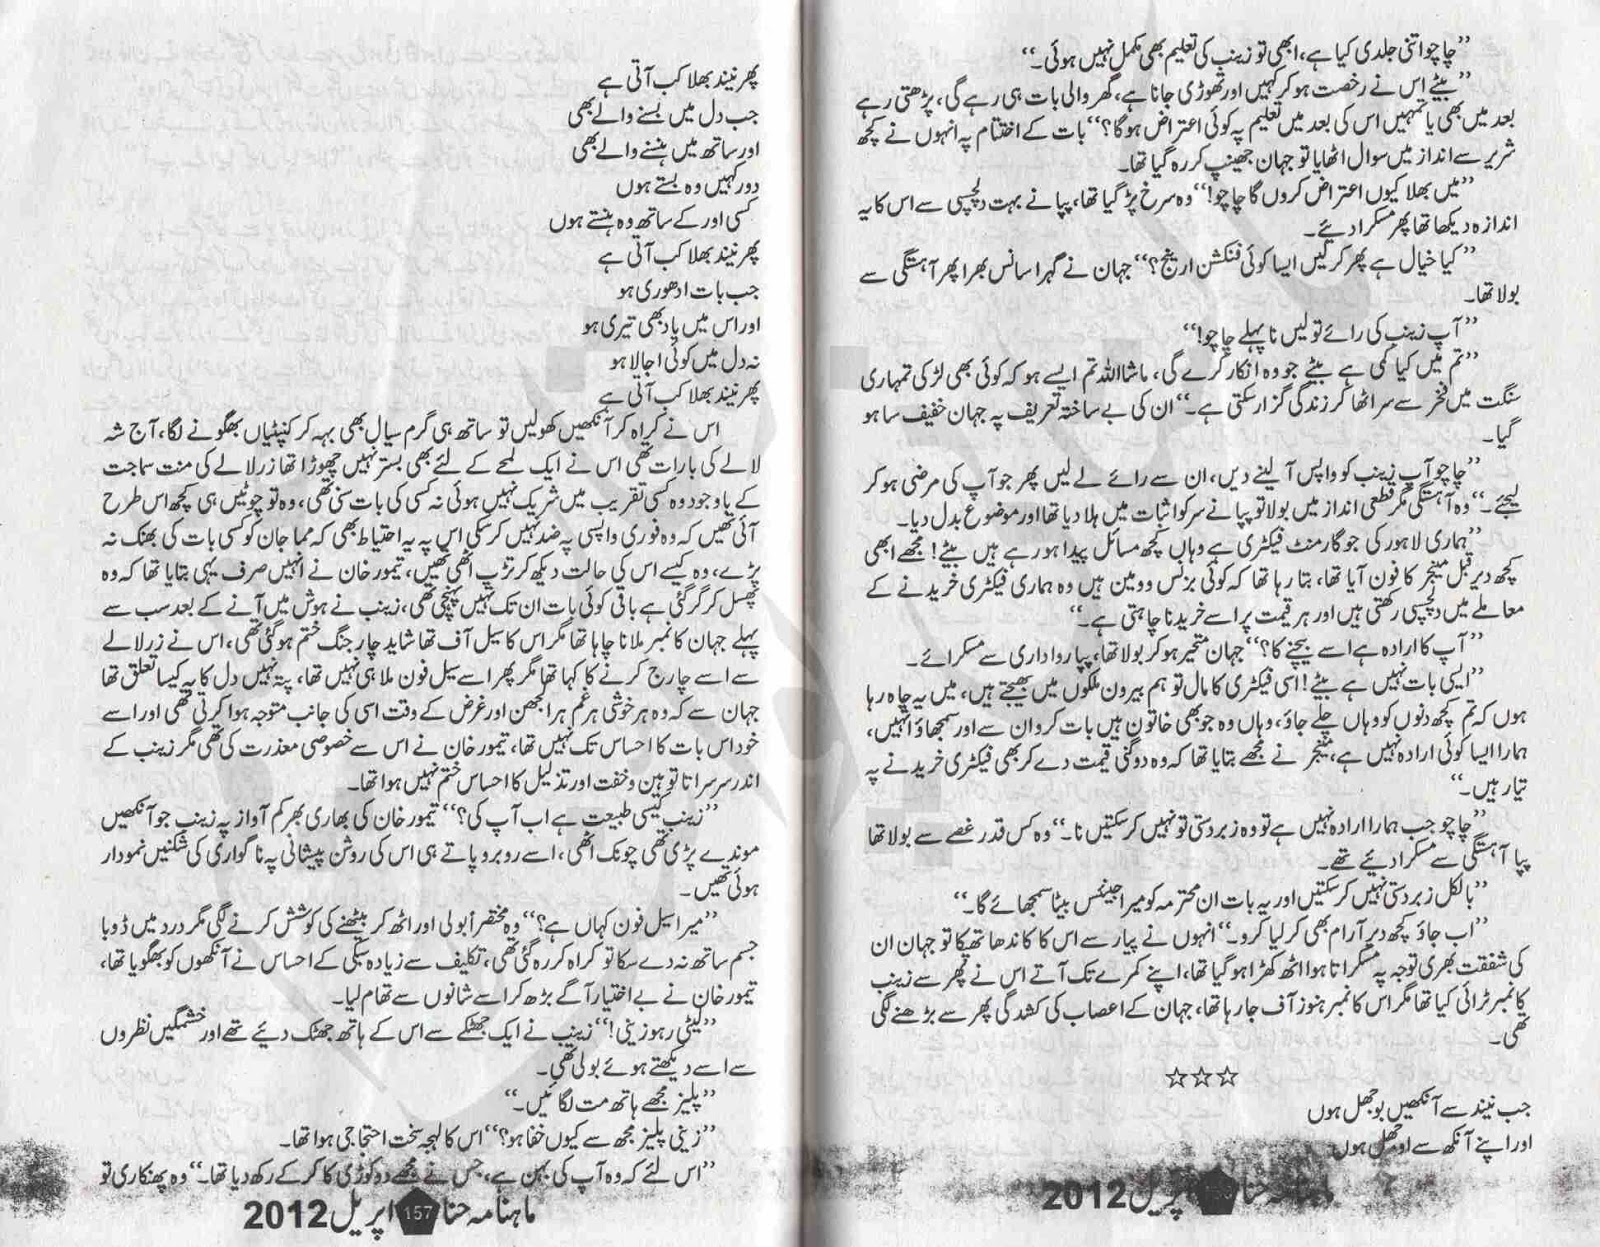 "چاچو اتنی جلدی کیا ہے، ابھی تو زینب کی تعلیم بھی مکمل نہیں ہوئی۔"
"بیٹے اس نے رخصت ہو کر کہیں اور تھوڑی جانا ہے، گھر والی بات ہی رہے گی، پڑھتی رہے
بعد میں بھی یا تمہیں اس کی بعد میں تعلیم پہ کوئی اعتراض ہوگا؟" بات کے اختتام پہ انہوں نے کچھ
شریر سے انداز میں سوال اٹھایا تو جہان جھینپ کر رہ گیا تھا۔
"میں بھلا کیوں اعتراض کروں گا چاچو!" وہ سرخ پڑ گیا تھا، پپا نے بہت دلچسپی سے اس کا یہ
اندازہ دیکھا تھا پھر مسکرا دیئے۔
"کیا خیال ہے پھر کر لیں ایسا کوئی فنکشن ارینج؟" جہان نے گہرا سانس بھرا پھر آہستگی سے
بولا تھا۔
"آپ زینب کی رائے تو لیں نا پہلے چاچو!"
"تم میں کیا کمی ہے بیٹے جو وہ انکار کرے گی، ماشااللہ تم ایسے ہو کہ کوئی بھی لڑکی تمہاری
سنگت میں فخر سے سر اٹھا کر زندگی گزار سکتی ہے۔" ان کی بے ساختہ تعریف پہ جہان خفیف سا ہو
گیا۔
"چاچو آپ زینب کو واپس آ لینے دیں، ان سے رائے لے لیں پھر جو آپ کی مرضی ہو کر
لیجئے۔" وہ آہستگی مگر قطعی انداز میں بولا تو پپا نے سر کو اثبات میں ہلا دیا تھا اور موضوع بدل دیا۔
"ہماری لاہور کی جو گارمنٹ فیکٹری ہے وہاں کچھ مسائل پیدا ہو رہے ہیں بیٹے! مجھے ابھی
کچھ دیر قبل منیجر کا فون آیا تھا، بتا رہا تھا کہ کوئی بزنس وومین ہیں وہ ہماری فیکٹری خریدنے کے
معاملے میں دلچسپی رکھتی ہیں اور ہر قیمت پر اسے خریدنا چاہتی ہے۔"
"آپ کا ارادہ ہے اسے بیچنے کا؟" جہان متحیر ہو کر بولا تھا، پپا رواداری سے مسکرائے۔
"ایسی بات نہیں ہے بیٹے! اسی فیکٹری کا مال تو ہم بیرون ملکوں میں بھیجتے ہیں، میں یہ چاہ رہا
ہوں کہ تم کچھ دنوں کو وہاں چلے جاؤ، وہاں وہ جو بھی خاتون ہیں بات کرو ان سے اور سمجھاؤ انہیں،
ہمارا ایسا کوئی ارادہ نہیں ہے، منیجر نے مجھے بتایا تھا کہ وہ دوگنی قیمت دے کر بھی فیکٹری خریدنے پہ
تیار ہیں۔"
"چاچو جب ہمارا ارادہ نہیں ہے تو وہ زبردستی تو نہیں کر سکتیں نا۔" وہ کس قدر غصے سے بولا تھا
پپا آہستگی سے مسکرا دیئے تھے۔
"بالکل زبردستی نہیں کر سکتیں اور یہ بات ان محترمہ کو میرا جینئس بیٹا سمجھائے گا۔"
"اب جاؤ کچھ دیر آرام بھی کر لیا کرو۔" انہوں نے پیار سے اس کا کاندھا تھپکا تو جہان ان
کی شفقت بھری توجہ پہ مسکراتا ہوا اٹھ کھڑا ہو گیا تھا، اپنے کمرے تک آتے اس نے پھر سے زینب
کا نمبر ٹرائی کیا تھا مگر اس کا نمبر ہنوز آف جا رہا تھا، جہان کے اعصاب کی کشدگی پھر سے بڑھنے لگی
تھی۔
☆☆☆
جب نیند سے آنکھیں بوجھل ہوں
اور اپنے آنکھ سے اوجھل ہوں
ماہنامہ حنا 156 اپریل 2012
پھر نیند بھلا کب آتی ہے
جب دل میں بسنے والے بھی
اور ساتھ میں ہنسنے والے بھی
دور کہیں وہ بستے ہوں
کسی اور کے ساتھ وہ ہنستے ہوں
پھر نیند بھلا کب آتی ہے
جب بات ادھوری ہو
اور اس میں یاد بھی تیری ہو
نہ دل میں کوئی اجالا ہو
پھر نیند بھلا کب آتی ہے
اس نے کراہ کر آنکھیں کھولیں تو ساتھ ہی گرم سیال بھی بہہ کر کنپٹیاں بھگونے لگا، آج شہ
لالے کی بارات تھی اس نے ایک لمحے کے لئے بھی بستر نہیں چھوڑا تھا زرلالے کی منت سماجت
کے باوجود وہ کسی تقریب میں شریک نہیں ہوئی نہ کسی کی بات سنی تھی، وہ تو چوٹیں ہی کچھ اس طرح
آئی تھیں کہ وہ فوری واپسی پہ ضد نہیں کر سکی اس پہ یہ احتیاط بھی کہ مما جان کو کسی بات کی بھنک نہ
پڑے، وہ کیسے اس کی حالت دیکھ کر تڑپ اٹھی تھیں، تیمور خان نے انہیں صرف یہی بتایا تھا کہ وہ
پھسل کر گر گئی ہے باقی کوئی بات ان تک نہیں پہنچی تھی، زینب نے ہوش میں آنے کے بعد سب سے
پہلے جہان کا نمبر ملانا چاہا تھا مگر اس کا سیل آف تھا شاید چارجنگ ختم ہو گئی تھی، اس نے زرلالے
سے اسے چارج کرنے کا کہا تھا مگر پھر اسے سیل فون ملا ہی نہیں تھا، پتہ نہیں دل کا یہ کیسا تعلق تھا
جہان سے کہ وہ ہر خوشی ہر غم ہر الجھن اور غرض کے وقت اسی کی جانب متوجہ ہوا کرتی تھی اور اسے
خود اس بات کا احساس تک نہیں تھا، تیمور خان نے اس سے خصوصی معذرت کی تھی مگر زینب کے
اندر سرسراتا توہین و خفت اور تذلیل کا احساس ختم نہیں ہوا تھا۔
"زینب کیسی طبیعت ہے اب آپ کی؟" تیمور خان کی بھاری بھرکم آواز پہ زینب جو آنکھیں
موندے پڑی تھی چونک اٹھی، اسے روبرو پاتے ہی اس کی روشن پیشانی پہ ناگواری کی شکنیں نمودار
ہوئی تھیں۔
"میرا سیل فون کہاں ہے؟" وہ مختصراً بولی اور اٹھ کر بیٹھنے کی کوشش کرنے لگی مگر درد میں ڈوبا
جسم ساتھ نہ دے سکا تو کراہ کر رہ گئی تھی، تکلیف سے زیادہ سبکی کے احساس نے آنکھوں کو بھگویا تھا،
تیمور خان نے بے اختیار آگے بڑھ کر اسے شانوں سے تھام لیا۔
"لیٹی رہو زینی!" زینب نے ایک جھٹکے سے اس کے ہاتھ جھٹک دیئے تھے اور خشمگیں نظروں
سے اسے دیکھتے ہوئے بولی تھی۔
"پلیز مجھے ہاتھ مت لگائیں۔"
"زینی پلیز مجھ سے کیوں خفا ہو؟" اس کا لہجہ سخت احتجاجی ہوا تھا۔
"اس لئے کہ وہ آپ کی بہن ہے، جس نے مجھے دو کوڑی کا کر کے رکھ دیا تھا۔" وہ پھنکاری تو
ماہنامہ حنا 157 اپریل 2012